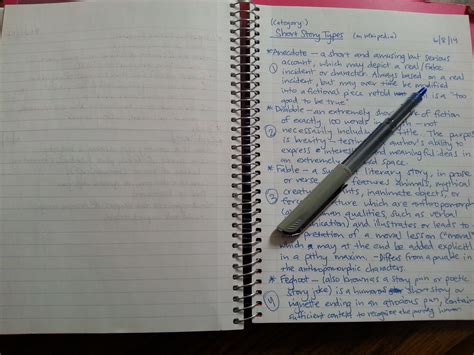 (Category:)
Short Story Types (on wikipedia) 6/8/14
*Anecdote – a short and amusing but serious
account, which may depict a real/fake
① incident or character. Always based on a real
incident, but may over time be modified
into a fictional piece retold is a "too
good to be true"
* Drabble – an extremely short of fiction
of exactly 100 words in – not
② necessarily including title. The purpose
is brevity – testing author's ability to
express interesting and meaningful ideas in
an extremely space.
* Fable – a literary story, in prose
or verse features animals, mythical
③ creatures, inanimate objects, or
which are anthropomorphic
human qualities, such as verbal
and illustrates or leads to
interpretation of a moral lesson ("moral")
which may at the end be added explicitly
in a pithy maxim. – Differs from a parable in
the anthropomorphic characters.
* Feghoot – (also known as a story pun or poetic
story joke) is a humorous short story or
④ vignette ending in an atrocious pun,
sufficient context to recognize the punning